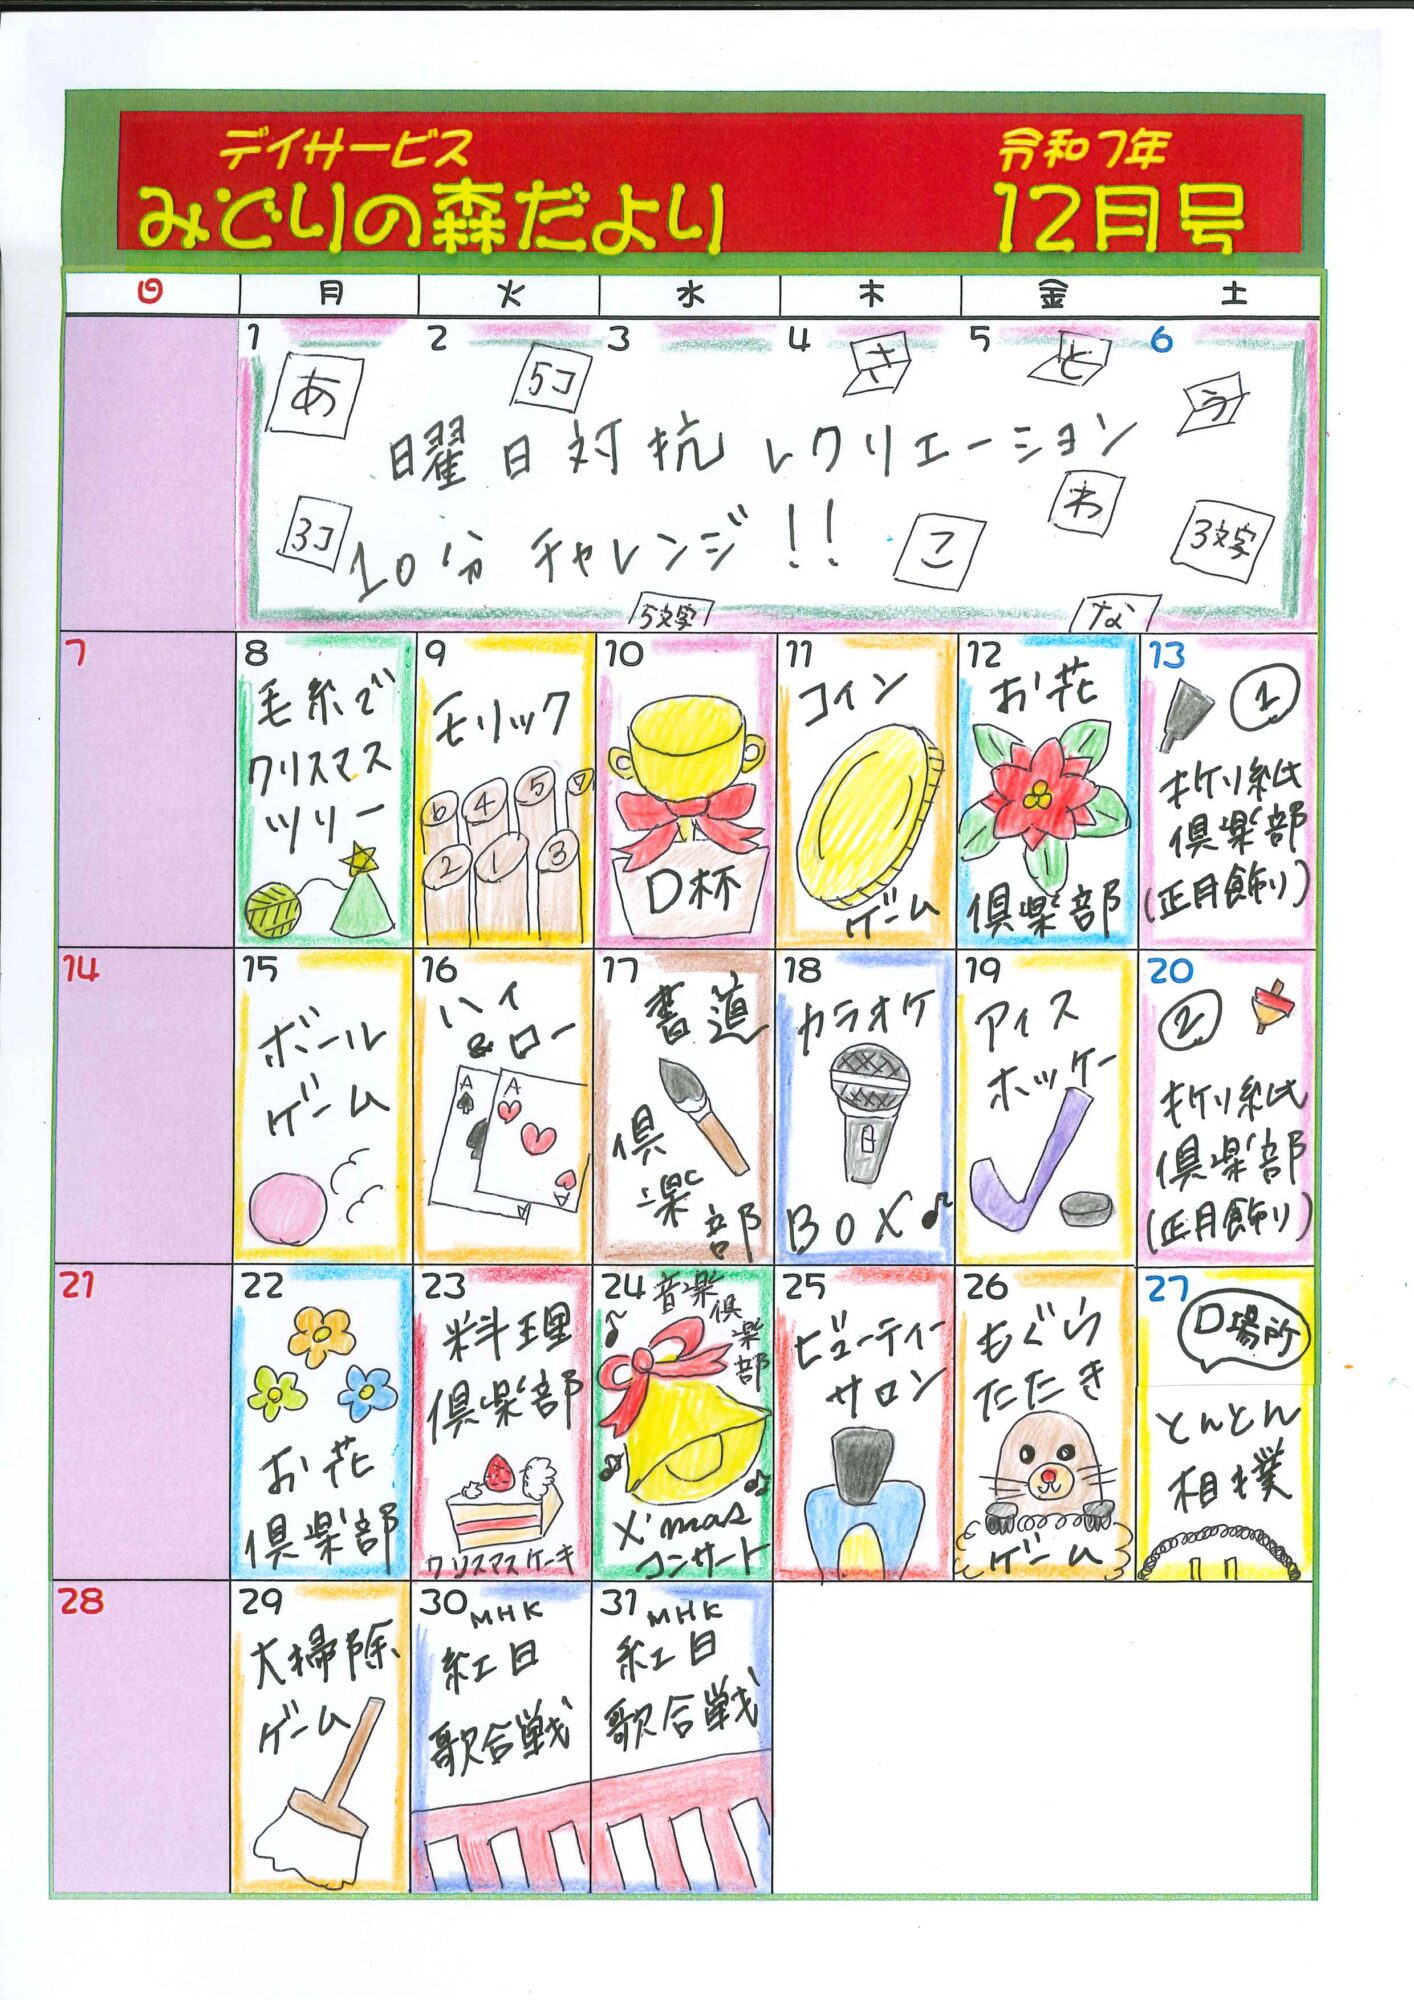 デイサービス
みどりの森だより
令和7年
12月号
日 月 火 水 木 金 土
1 2 3 4 5 6
あ 5コ さ と う
曜日対抗レクリエーション
10分チャレンジ!!
3コ こ わ 3文字
5文字 な
7
8
毛糸で
クリスマス
ツリー
9
モリック
6 4 5 7
2 1 3
10
D杯
11
コイン
ゲーム
12
お花
倶楽部
13
①
折り紙
倶楽部
(正月飾り)
14
15
ボール
ゲーム
16
ハイ
&ロー
A A
A A
17
書道
倶楽部
18
カラオケ
BOX♪
19
アイス
ホッケー
20
②
折り紙
倶楽部
(正月飾り)
21
22
お花
倶楽部
23
料理
倶楽部
クリスマスケーキ
24
音楽倶楽部
X'mas
コンサート
25
ビューティー
サロン
26
もぐら
たたき
ゲーム
27
D場所
とんとん
相撲
28
29
大掃除
ゲーム
30
MHK
紅白
歌合戦
31
MHK
紅白
歌合戦